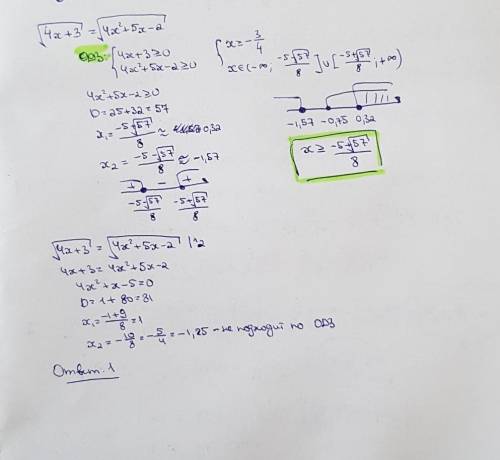 √4x+3 = √4x²+5x-2
ОДЗ: {4x+3≥0
4x²+5x-2≥0
{x≥-3/4
x∈(-∞; (-5-√57)/8]∪[(-5+√57)/8; +∞)
4x²+5x-2≥0
D=25+32=57
x₁=(-5+√57)/8 ≈ 0,32
x₂=(-5-√57)/8 ≈ -1,57
+ - +
(-5-√57)/8 (-5+√57)/8
-1,57 -0,75 0,32
x ≥ (-5+√57)/8
√4x+3 = √4x²+5x-2 |^2
4x+3=4x²+5x-2
4x²+x-5=0
D=1+80=81
x₁=(-1+9)/8=1
x₂=-10/8=-5/4=-1,25 - не подходит по ОДЗ
Ответ: 1